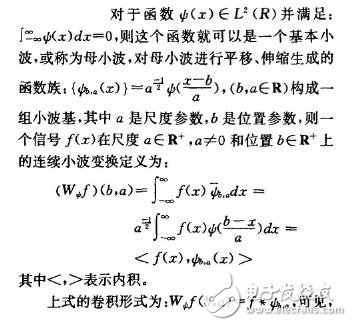 对于函数 ψ(x)∈L²(R)并满足:
∫_{-∞}^{∞}ψ(x)dx=0,则这个函数就可以是一个基本小
波,或称为母小波,对母小波进行平移、伸缩生成的
函数族:{ψ_{b,a}(x)}=a^{-1/2}ψ((x-b)/a),(b,a∈R)构成一
组小波基,其中 a 是尺度参数,b 是位置参数,则一
个信号 f(x)在尺度 a∈R⁺,a≠0 和位置 b∈R⁺上
的连续小波变换定义为:
(W_ψf)(b,a)=∫_{-∞}^{∞}f(x)ψ̄_{b,a}dx=
a^{-1/2}∫_{-∞}^{∞}f(x)ψ((b-x)/a)dx=
<f(x),ψ_{b,a}(x)>
其中<,>表示内积。
上式的卷积形式为:W_ψf =f*ψ ,可见,
电子发烧友